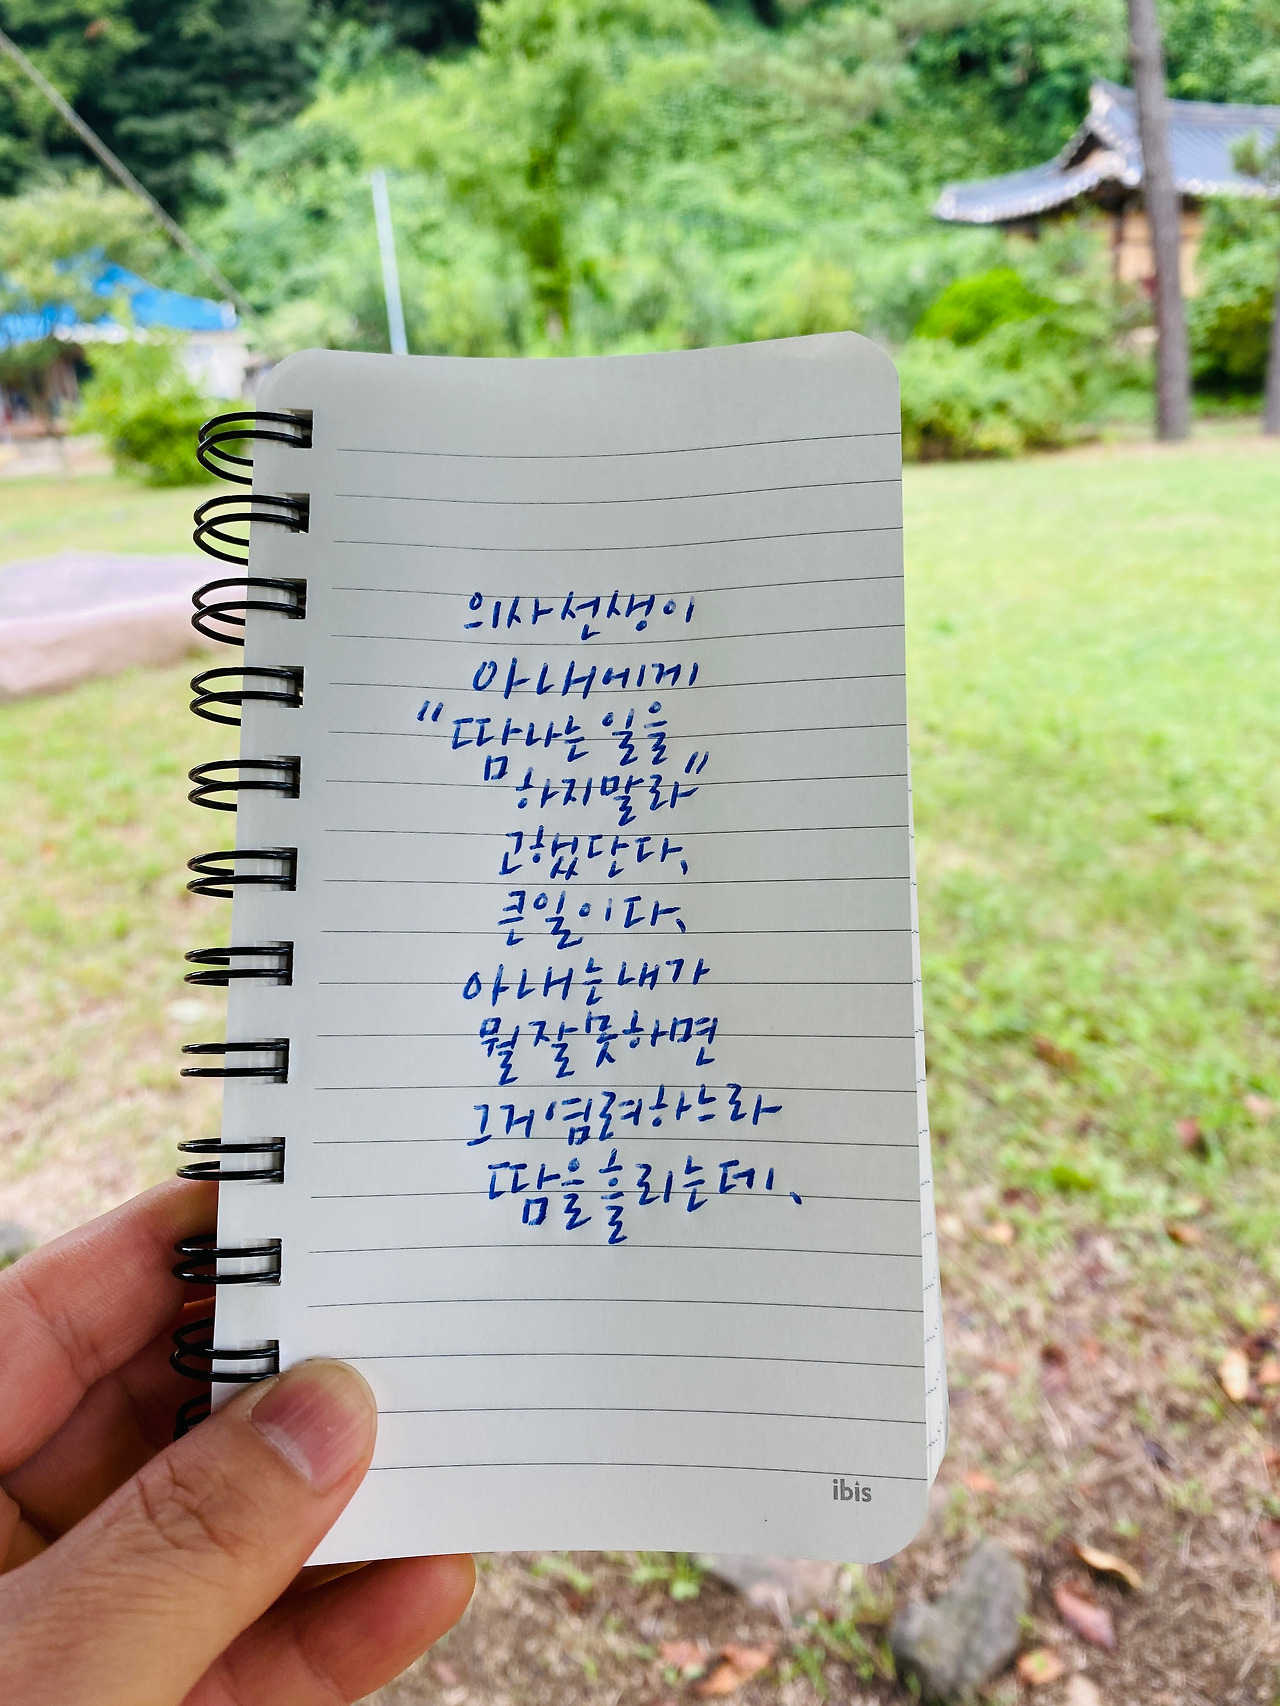 의사선생이
아내에게
"땀나는 일을
하지말라"
고했단다,
큰일이다,
아내는내가
뭘잘못하면
그거염려하느라
땀을흘리는데,
ibis